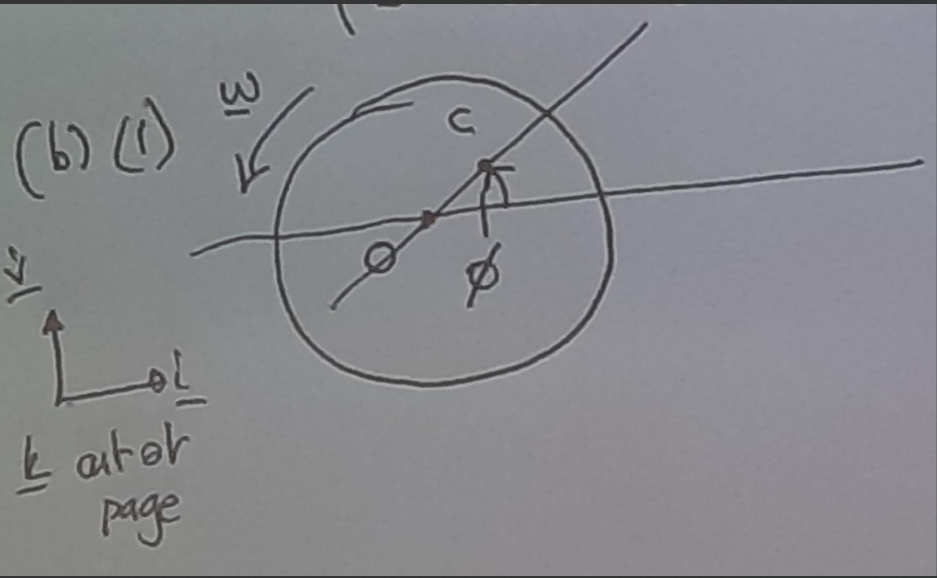 (b) (1)
ω
C
O
ϕ
j
i
k out of
page